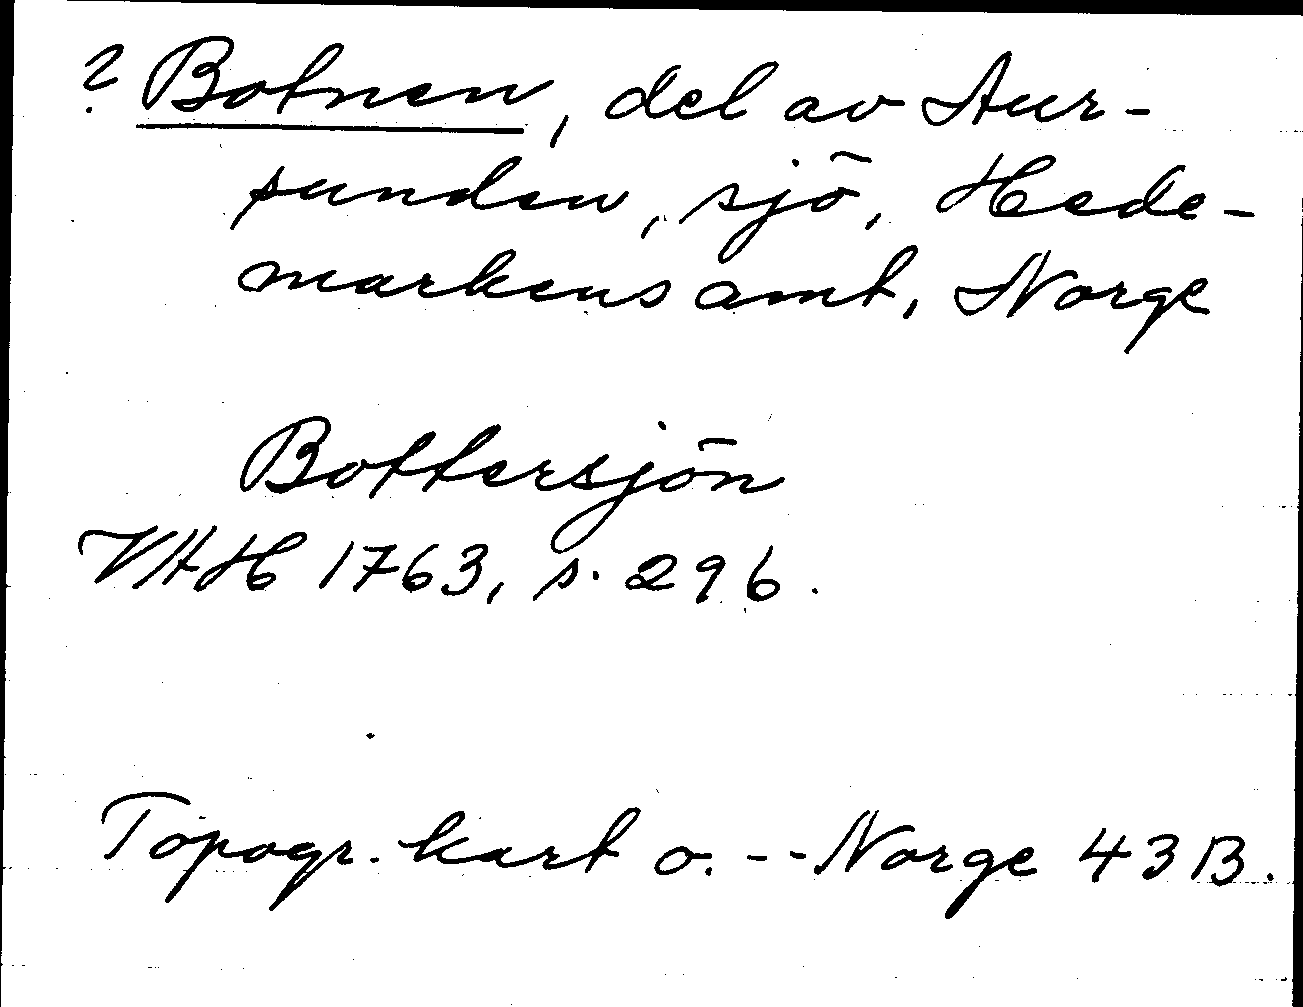 ? Botnen, del av Aur-
sunden, sjö, Hede-
markens amt, Norge
Bottersjön
VAH 1763, s. 296.
Topogr. kart o. -- Norge 43 B.